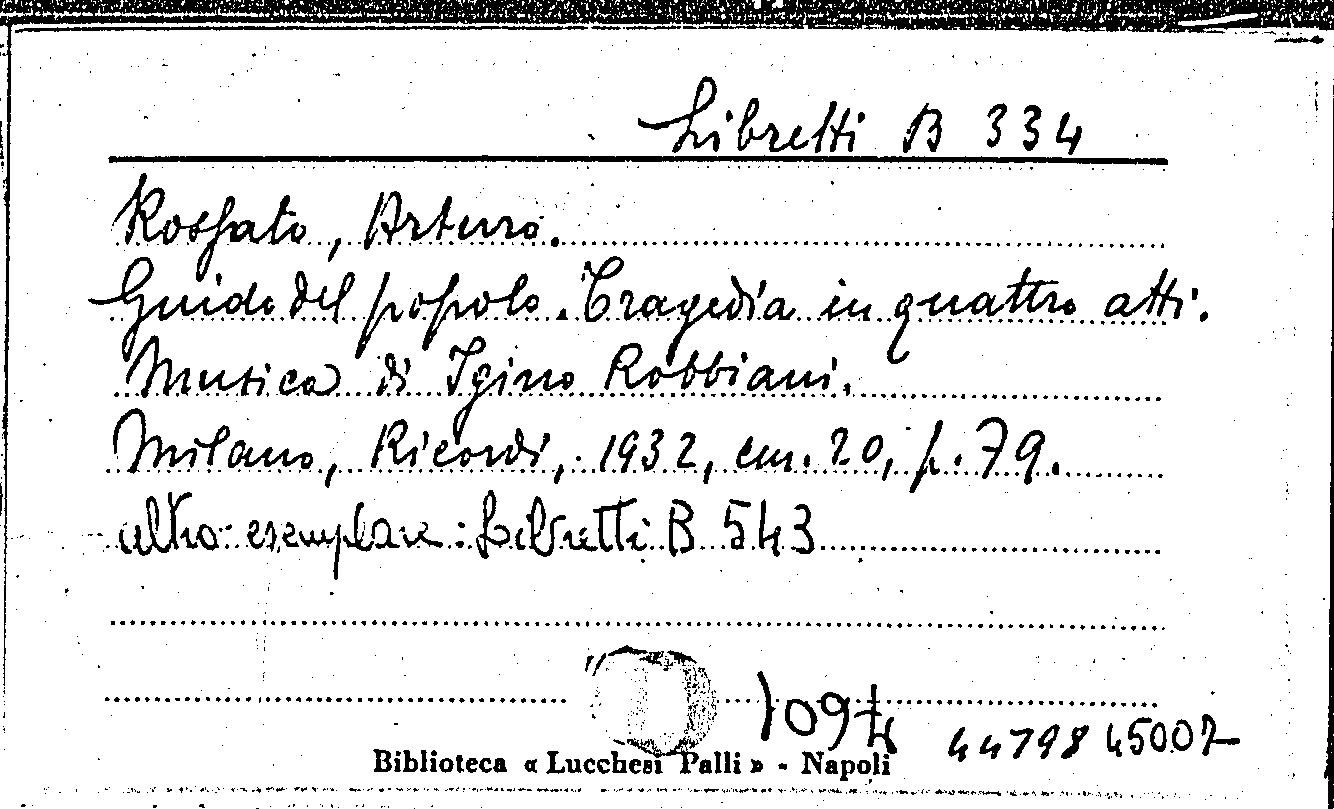 Libretti B 334
Rossato, Arturo.
Guido del popolo. Tragedia in quattro atti.
Musica di Igino Robbiani.
Milano, Ricordi, 1932, cm. 20, p. 79.
altro esemplare: Libretti B 543
44798 45007
Biblioteca « Lucchesi Palli » - Napoli